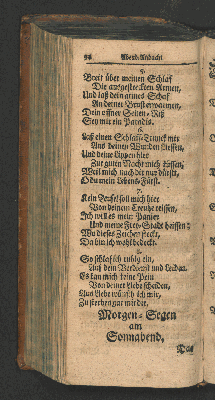 94 Abend-Andacht
5.
Breit über meinen Schlaf
Die ausgestreckten Armen,
Und laß dein armes Schaf
An deiner Brust erwarmen,
Dein offner Seiten-Riß
Sey mir ein Paradis.
6.
Laß einen Schlaf-Trunck mir
Aus deinen Wunden fliessen,
Und deine Lippen hier
Zur guten Nacht mich küssen,
Weil mich nach dir nur dürst,
O du mein Lebens-Fürst.
7.
Kein Teufel soll mich hier
Von deinem Creutze reissen,
Ich will es mein Panier
Und meine Frey-Stadt heissen:
Wo dieses Zeichen steckt,
Da bin ich wohl bedeckt.
8.
So schlaf ich ruhig ein,
Auf dein Verdienst und Leiden.
Es kan mich keine Pein
Von deiner Liebe scheiden,
Aus Liebe wünsch ich mir,
Zu sterben gar mit dir.
Morgen-Segen
am
Sonnabend.